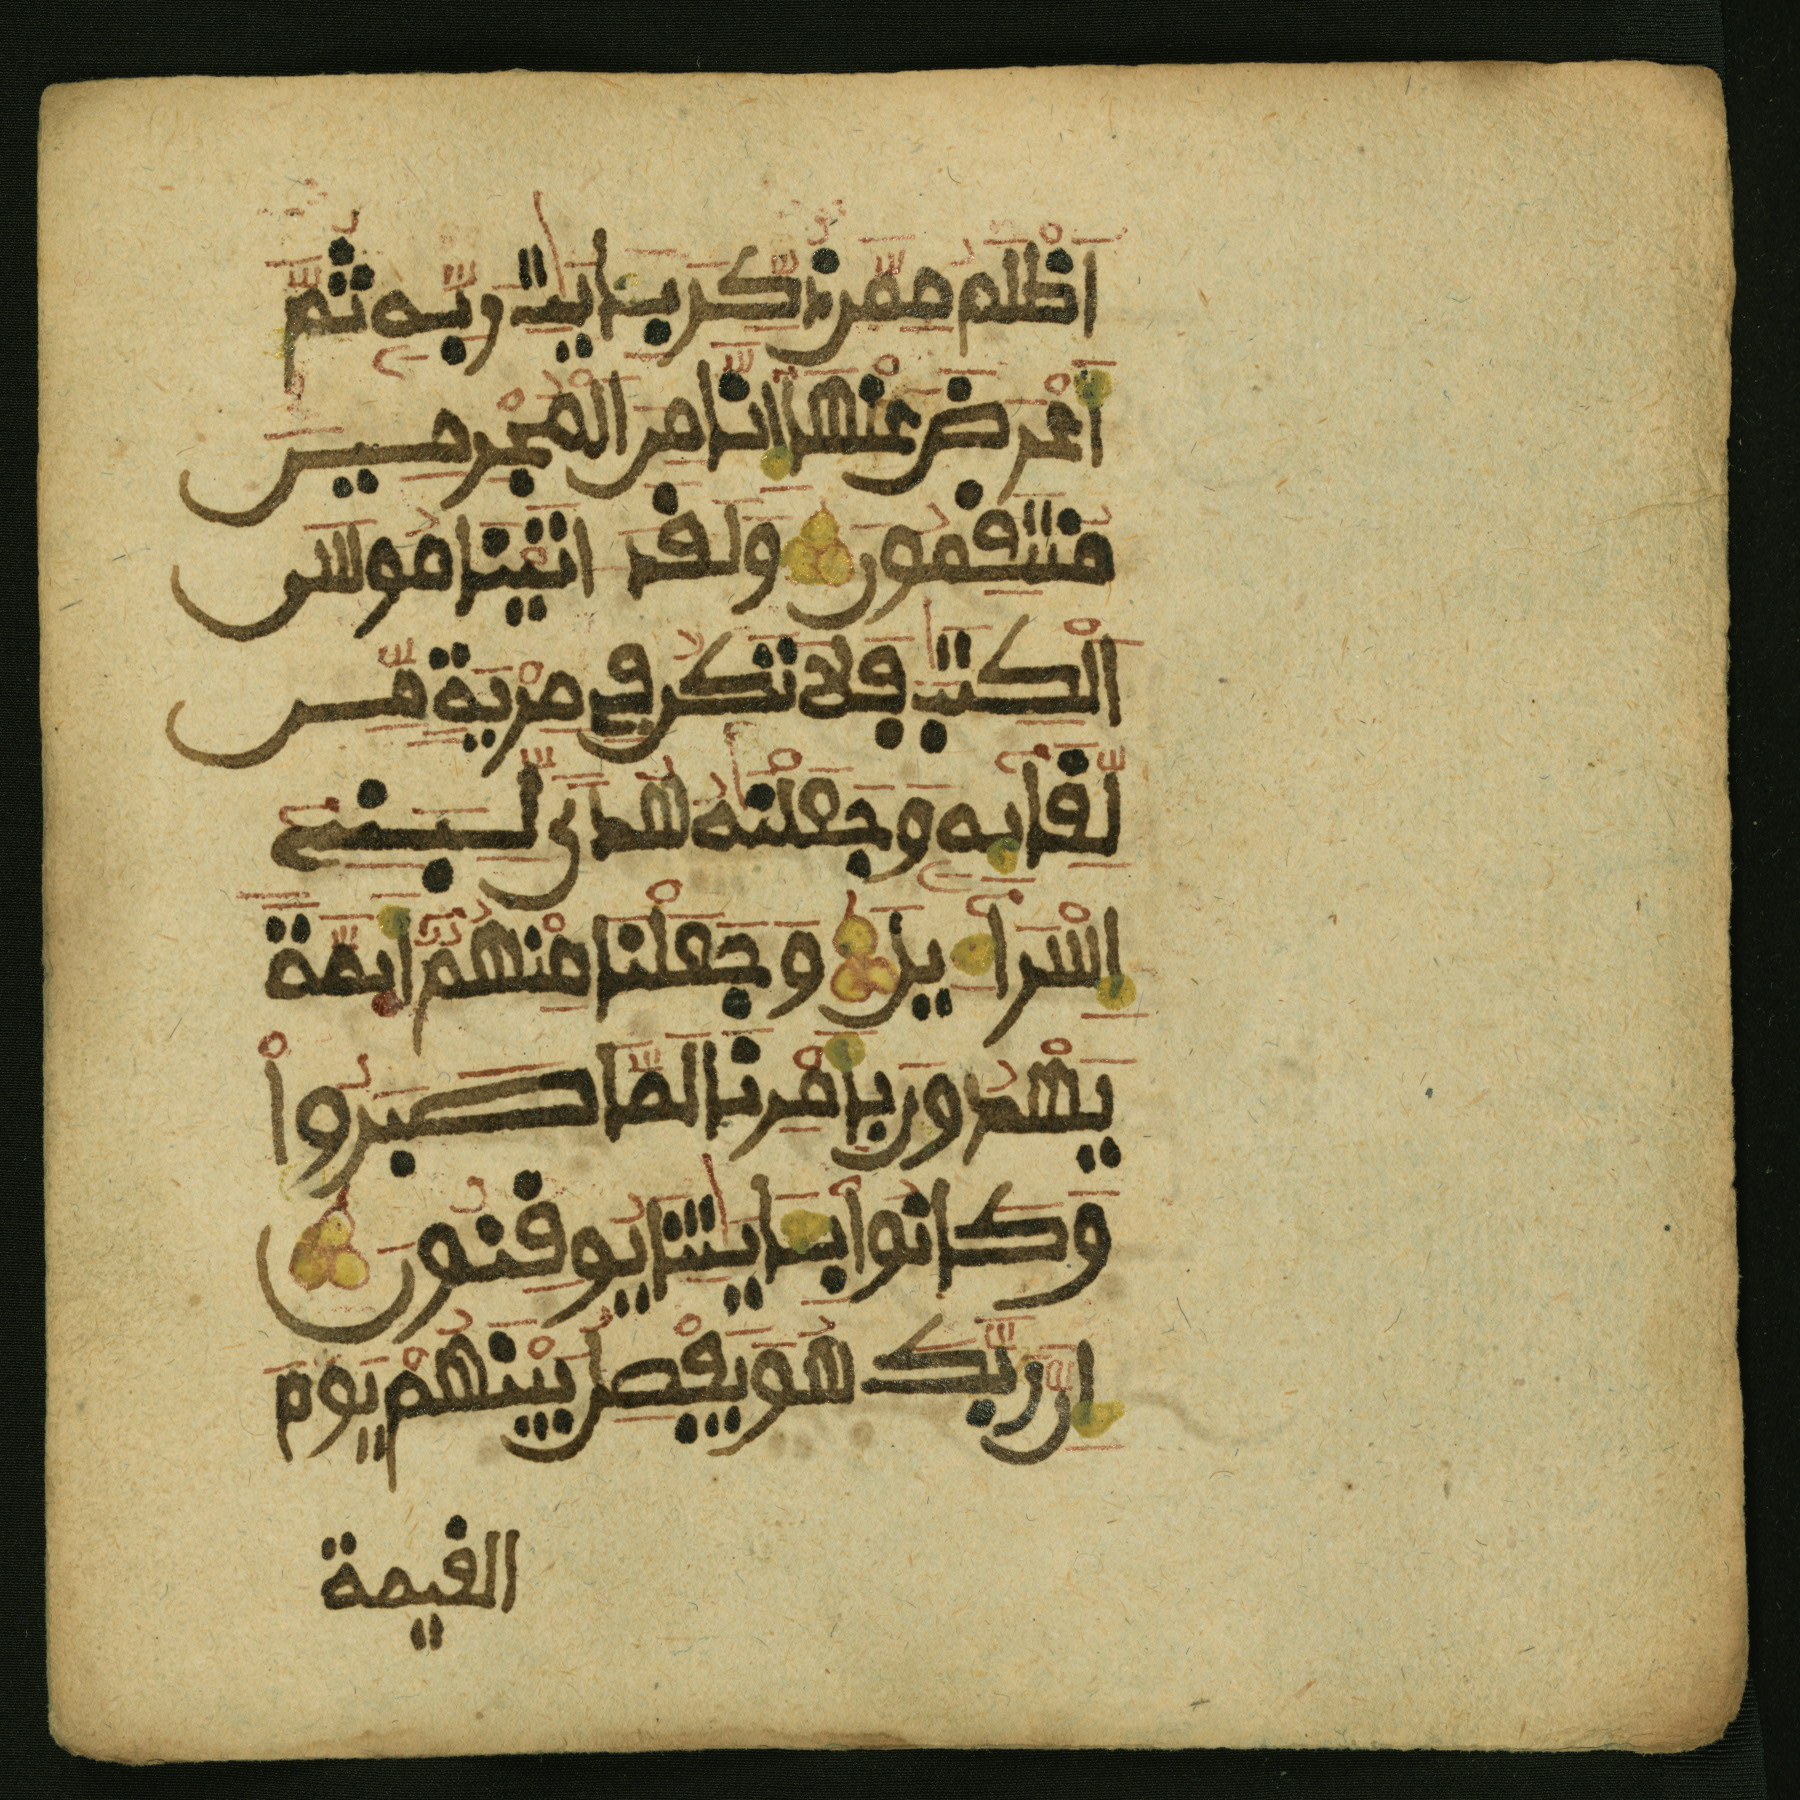 اَظْلَمُ مِمَّن ذُكِّرَ بِـَٔايَٰتِ رَبِّهِۦ ثُمَّ
أَعْرَضَ عَنْهَآ إِنَّا مِنَ الْمُجْرِمِينَ
مُنتَقِمُونَ وَلَقَدَ اتَيْنَا مُوسَى
الْكِتَٰبَ فَلَا تَكُن فِي مِرْيَةٍ مِّن
لِّقَآئِهِۦ وَجَعَلْنَٰهُ هُدًى لِّبَنِيٓ
إِسْرَآءِيلَ وَجَعَلْنَا مِنْهُمُۥٓ أَئِمَّةً
يَهْدُونَ بِأَمْرِنَا لَمَّا صَبَرُواْ
وَكَانُواْ بِـَٔايَٰتِنَا يُوقِنُونَ
إِنَّ رَبَّكَ هُوَ يَفْصِلُ بَيْنَهُمْ يَوْمَ
القيمة